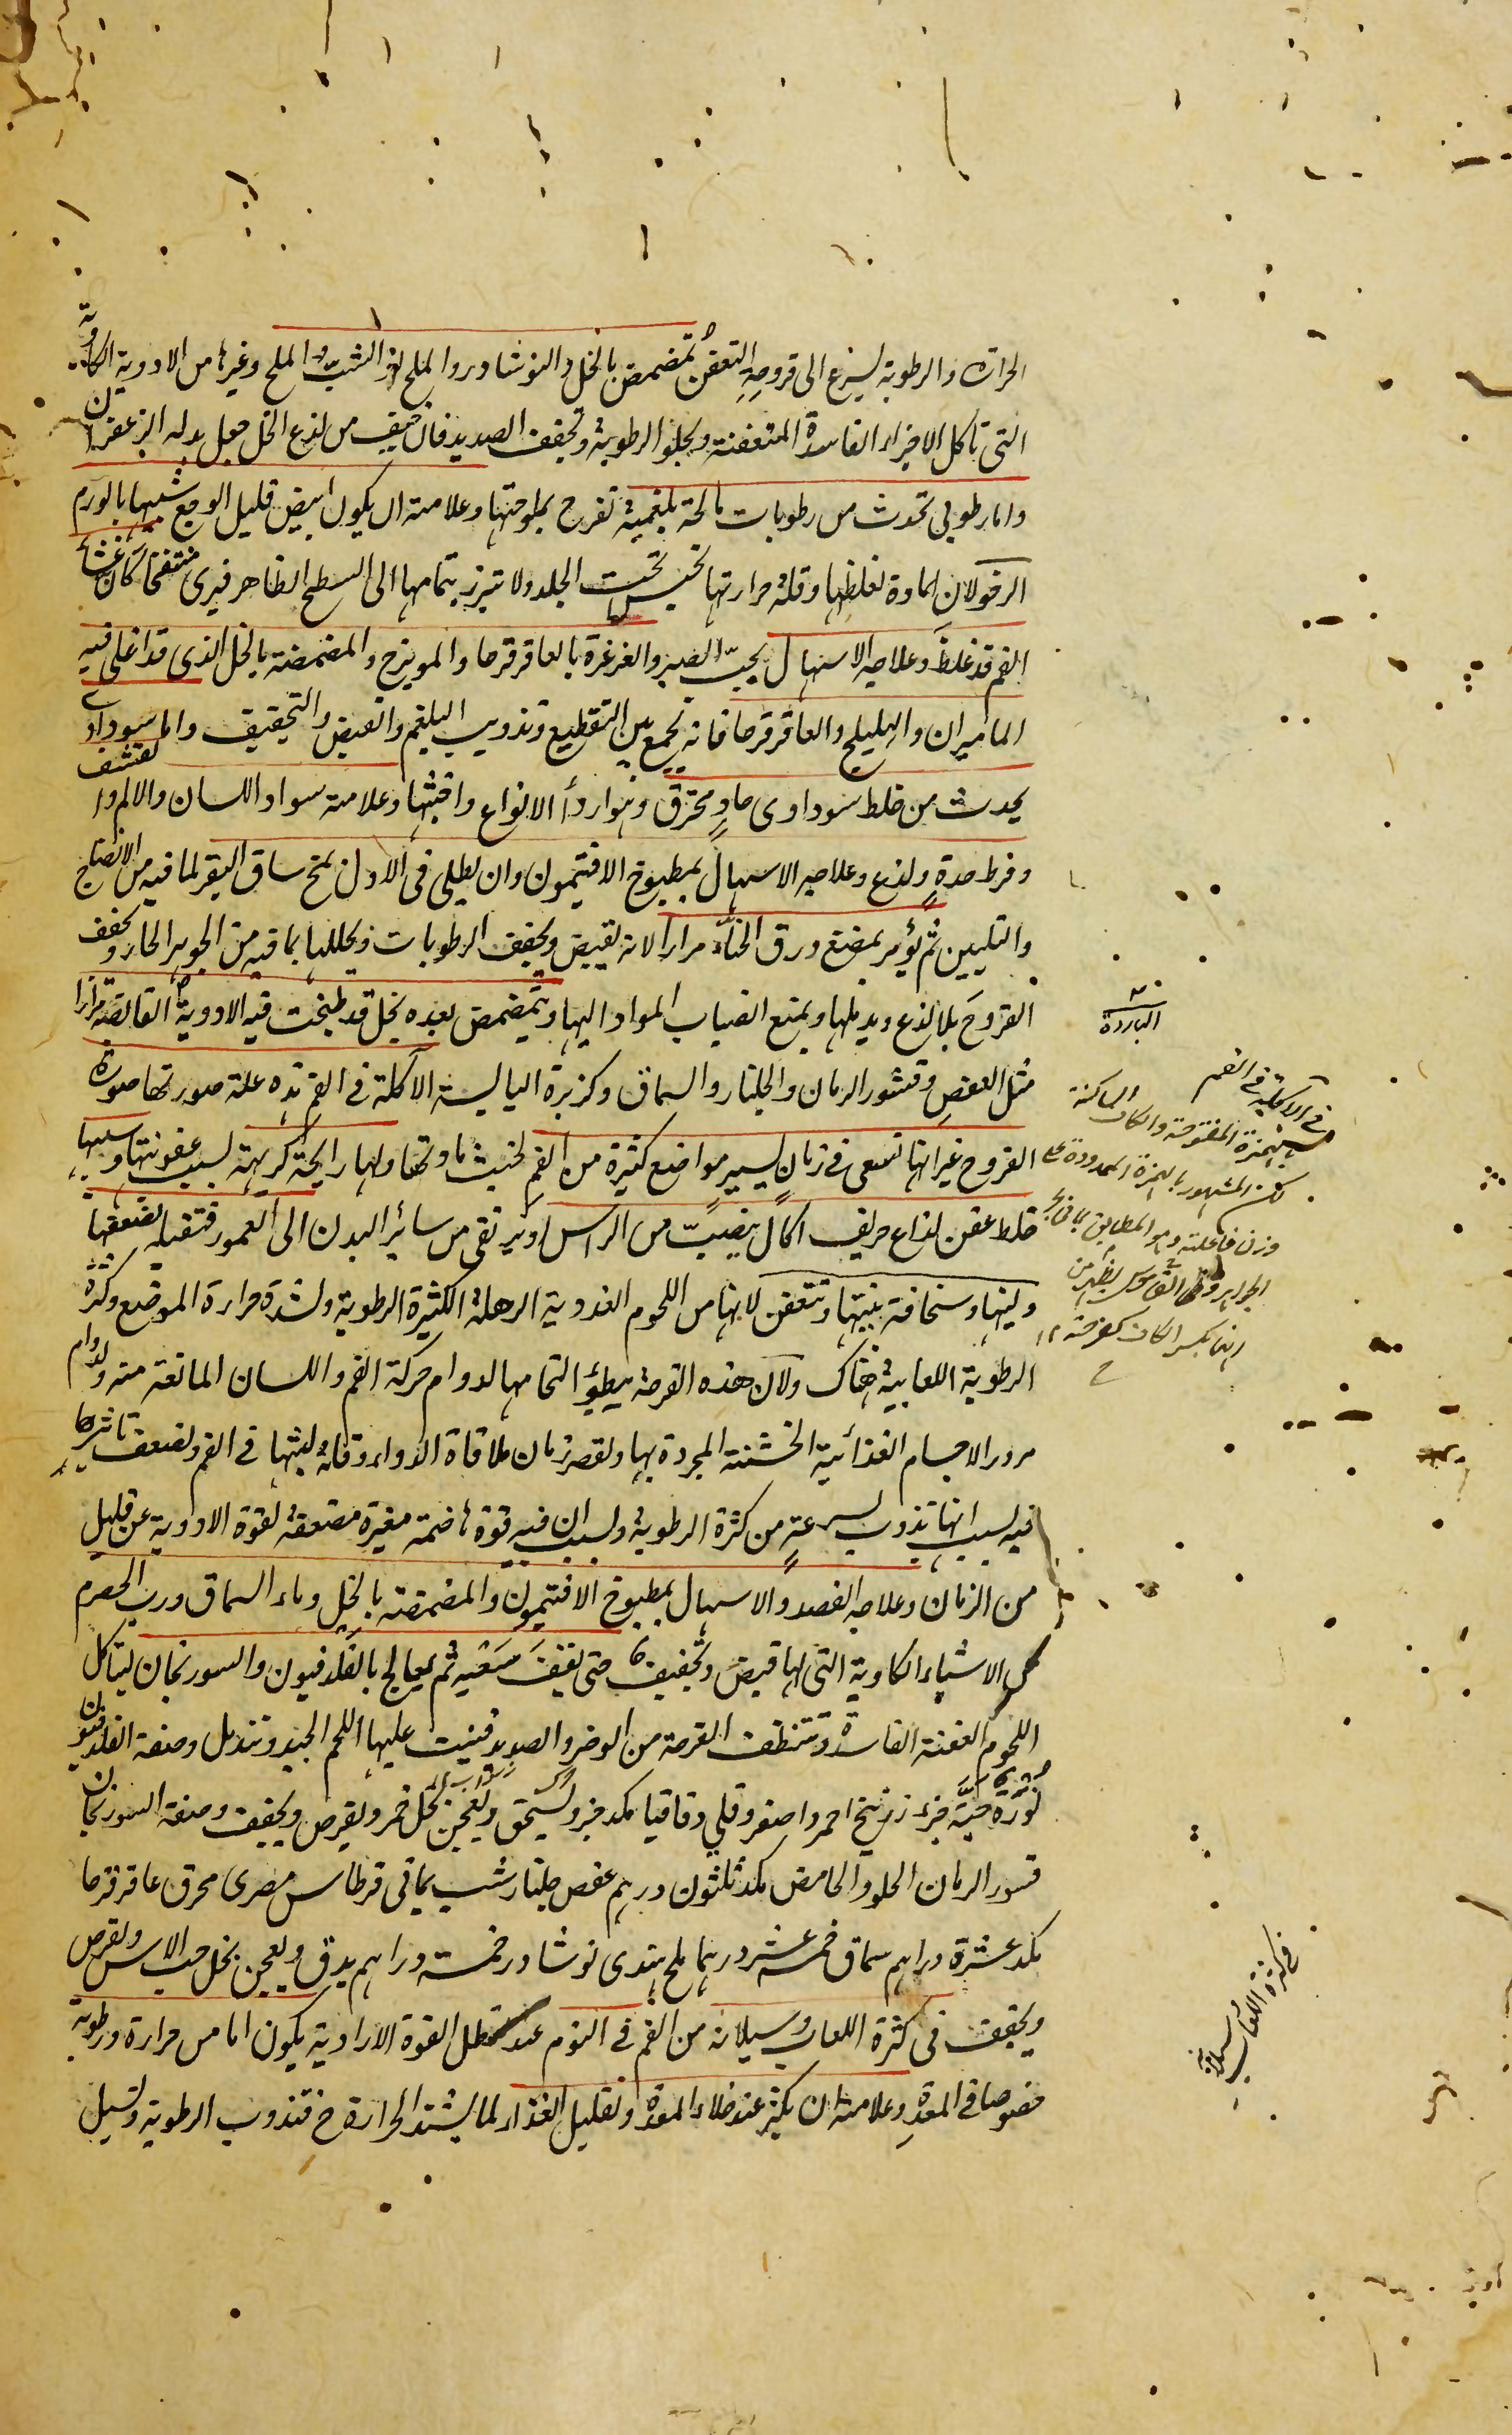 الحرارة والرطوبة ليسرع الى قروحه التعفن تمضمض بالخل والنوشادر والملح او الشب والملح وغيرها من الادوية الكاوية
التى تاكل الاجزاء الفاسدة المتعفنة ويجلو الرطوبة وتجفف الصديد فان خيف من لذع الخل جعل بدله الزعفران
واما رطوبى تحدث من رطوبات مالحة بلغمية تقرح بملوحتها وعلامته ان يكون ابيض قليل الوجع شبيها بالورم
الرخو لان المادة لغلظها وقلة حرارتها تحتبس تحت الجلد ولا تبرز بتمامها الى السطح الظاهر فيرى منتفخا كان غشاء
الفم قد غلظ وعلاجه الاسهال بحب الصبر والغرغرة بالعاقرقرحا والمويزج والمضمضة بالخل الذى قد اغلى فيه
الماميران والهليلج والعاقرقرحا فانه يجمع بين التقطيع وتذويب البلغم والقبض والتجفيف واما سوداوى
يحدث من خلط سوداوى حاد محترق وهو اردأ الانواع واخبثها وعلامته سواد اللسان والالم و التقشف
وفرط حدة ولذع وعلاجه الاسهال بمطبوخ الافتيمون وان يطلى فى الاول بمخ ساق البقر لما فيه من الانضاج
والتليين ثم يؤمر بمضغ ورق الحناء مرارا لانه يقبض ويجفف الرطوبات ويحللها بما فيه من الجوهر الحار ويجفف
القروح بلا لذع ويدملها ويمنع انصباب المواد اليها ويتمضمض بعده بخل قد طبخت فيه الادوية القابضة مرارا
مثل العفص وقشور الرمان والجلنار والسماق وكزبرة اليابسة الآكلة فى الفم هذه علة صورتها صورة
القروح غير انها تسعى فى زمان يسير مواضع كثيرة من الفم لخبث مادتها ولها رايحة كريهة لسبب عفونتها وسببها
خلط عفن لذاع حريف اكال ينصب من الراس او يرتقى من سائر البدن الى العمور فتقبله لضعفها
ولينها وسخافة بنيتها وتتعفن لانها من اللحوم الغددية الرهلة الكثيرة الرطوبة ولشدة حرارة الموضع وكثرة
الرطوبة اللعابية هناك ولان هذه القرحة يبطؤ التحامها لدوام حركة الفم واللسان المانعة منه ولدوام
مرور الاجسام الغذائية الخشنة المجردة بها ولقصر زمان ملاقاة الدواء وقلة لبثها فى الفم ولضعف تاثيرها
فيه لسبب انها تذوب بسرعة من كثرة الرطوبة ولسبب ان فيه قوة هاضمة مغيرة مضعفة لقوة الادوية عن قليل
من الزمان وعلاجه الفصد والاسهال بمطبوخ الافتيمون والمضمضة بالخل وماء السماق ورب الحصرم
من الاشياء الكاوية التى لها قبض وتجفيف حتى تقف سعيه ثم يعالج بالفلدفيون والسورنجان لتاكل
اللحوم العفنة الفاسدة وتتنظف القرحة من الوضر والصديد فينبت عليها اللحم الجيد وتندمل وصفة الفلدفيون
نورة حية جزء زرنيخ احمر واصفر وقلى وقاقيا مكد جزو يسحق ويعجن بخل خمر ويقرص ويجفف وصفة السورنجان
قشور الرمان الحلو والحامض مكد ثلثون درهم عفص جلنار شب يمانى قرطاس مصرى محرق عاقرقرحا
مكد عشرة دراهم سماق خمسة عشر درهما ملح هندى نوشادر خمسة دراهم يدق ويعجن بخل حب الاس ويقرص
ويجفف فى كثرة اللعاب وسيلانه من الفم فى النوم عند تعطل القوة الارادية يكون اما من حرارة ورطوبة
خصوصا فى المعدة وعلامته ان يكثر عند خلاء المعدة وتقليل الغذاء لما يشتد الحرارة ح فتذوب الرطوبة وتسيل
الباردة
فى الآكلة فى الفم
بهمزة المفتوحة والكاف الساكنة
لكن المشهور بالهمزة الممدودة على
وزن فاعلة وهو المطابق لما فى بحر
الجواهر وفى القاموس يظهر من
انها بكسر الكاف كفرحة ١٢
فى كثرة اللعاب وسيلانه